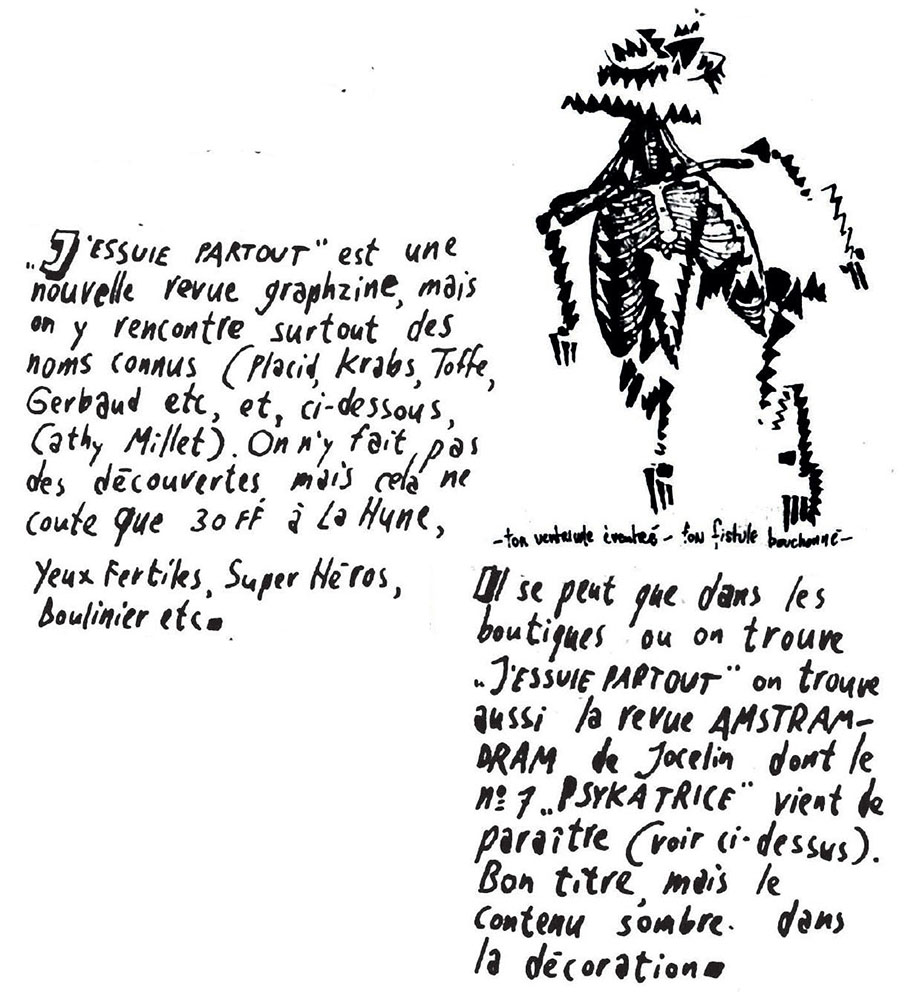 „J'ESSUIE PARTOUT" est une
nouvelle revue graphzine, mais
on y rencontre surtout des
noms connus (Placid, Krabs, Toffe,
Gerbaud etc, et, ci-dessous,
Cathy Millet). On n'y fait pas
des découvertes mais cela ne
coute que 30 FF à La Hune,
Yeux Fertiles, Super Héros,
Boulinier etc.
-ton ventricule éventré - ton fistule bouchonné-
Il se peut que dans les
boutiques ou on trouve
„J'ESSUIE PARTOUT" on trouve
aussi la revue AMSTRAM-
DRAM de Jocelin dont le
nº 7 „PSYKATRICE" vient de
paraître (voir ci-dessus).
Bon titre, mais le
contenu sombre. dans
la décoration